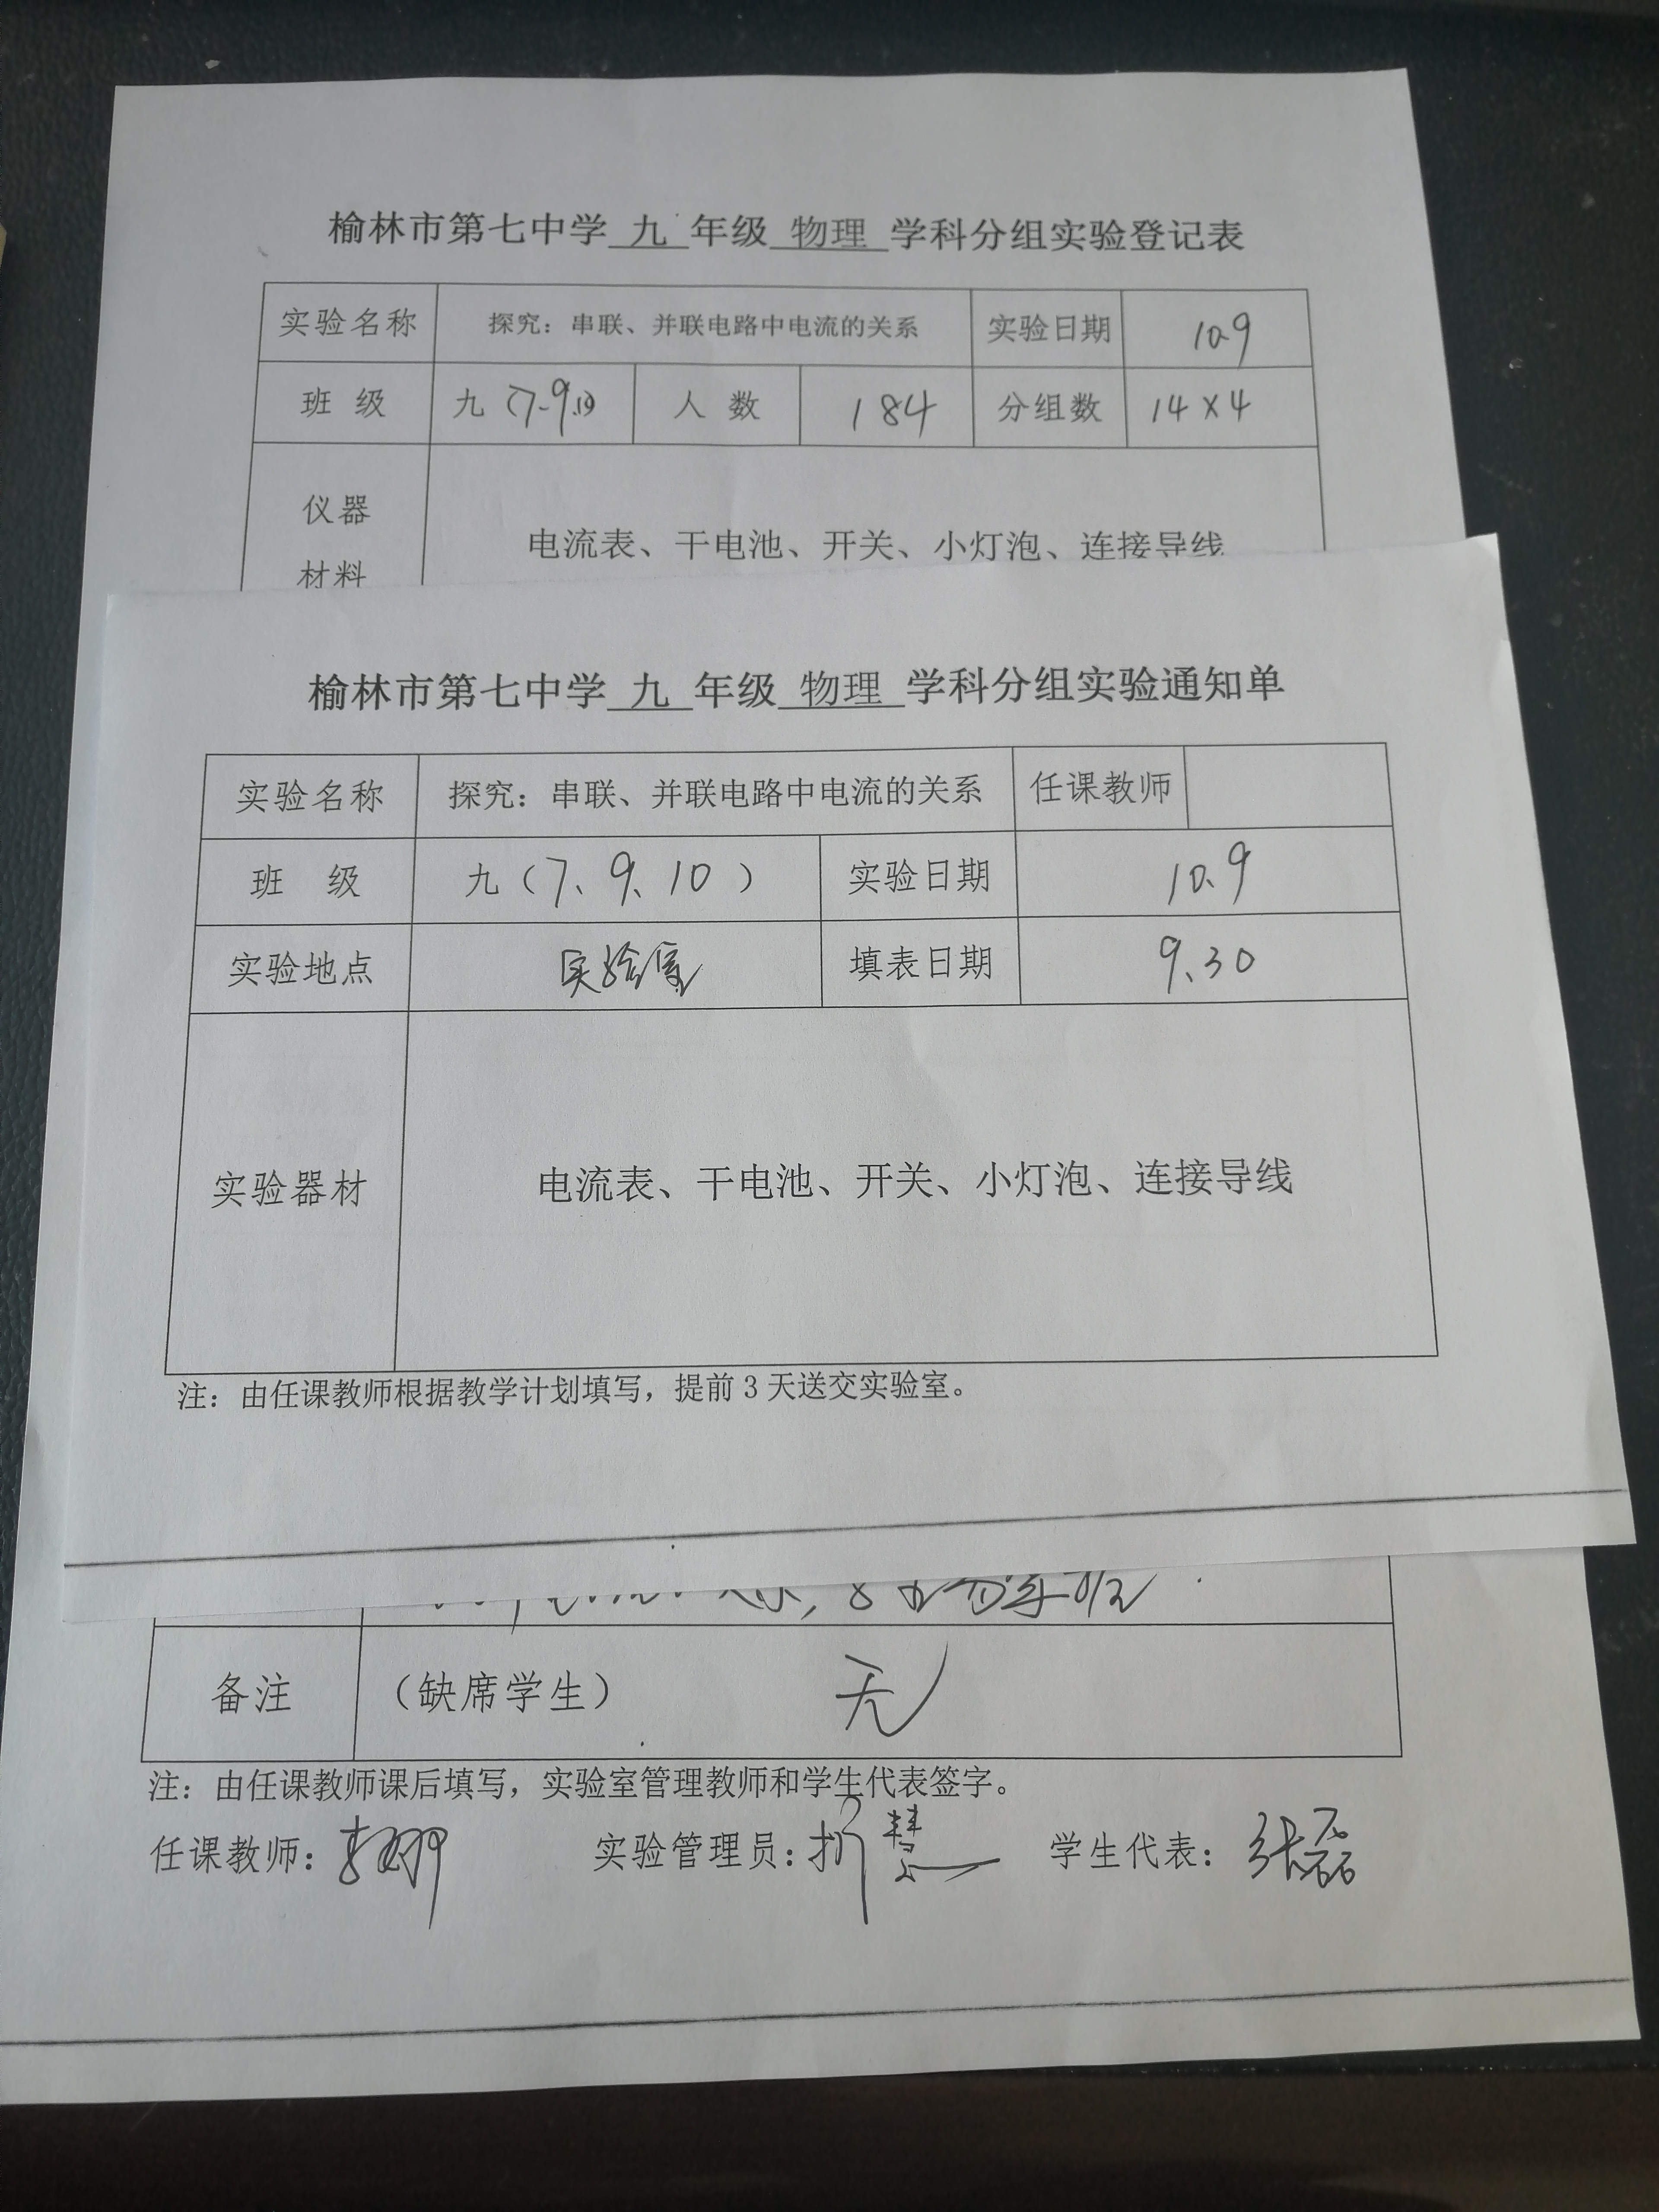 榆林市第七中学 九 年级 物理 学科分组实验登记表
实验名称 探究：串联、并联电路中电流的关系 实验日期 10.9
班 级 九（7.9.10） 人 数 184 分组数 14×4
仪器
材料
电流表、干电池、开关、小灯泡、连接导线
榆林市第七中学 九 年级 物理 学科分组实验通知单
实验名称 探究：串联、并联电路中电流的关系 任课教师
班 级 九（7、9、10） 实验日期 10.9
实验地点 实验室 填表日期 9.30
实验器材 电流表、干电池、开关、小灯泡、连接导线
注：由任课教师根据教学计划填写，提前3天送交实验室。
备注 （缺席学生） 无
注：由任课教师课后填写，实验室管理教师和学生代表签字。
任课教师： 实验管理员：折慧 学生代表：张磊